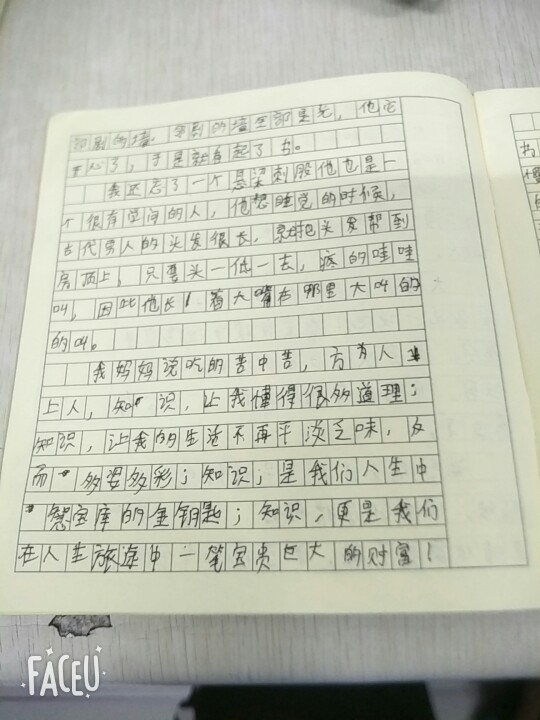 到的墙，穿到的墙全部是光，他它
心了，于是就看起了书。
我还忘了一个悬梁刺股他也是一
个很有空间的人，他想睡觉的时候，
古代男人的头发很长，就把头发帮到
房顶上，只要头一低一去，疼的哇哇
叫，因此他长着大嘴在哪里大叫的
的叫。
我妈妈说吃的苦中苦，方为人
上人，知识，让我懂得很多道理；
知识，让我的生活不再平淡乏味，反
而多姿多彩；知识，是我们人生中
宝库的金钥匙；知识，更是我们
在人生旅途中一笔宝贵巨大的财富！
书
的
FACEU